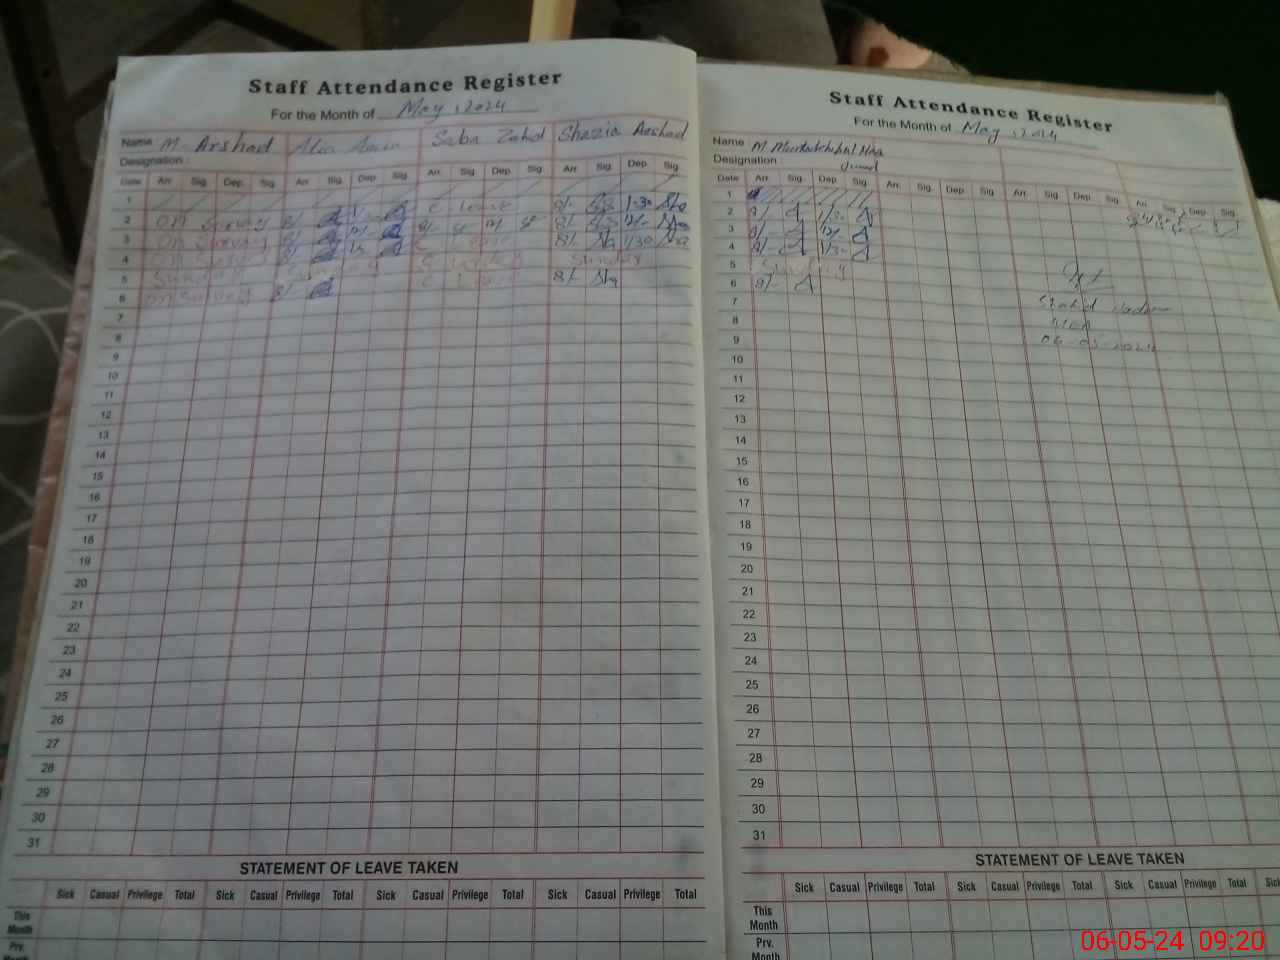 Staff Attendance Register
For the Month of May, 2024
Name M. Arshad Saba Zahid Shazia Arshad
Designation :
Date Arr. Sig. Dep. Sig. Arr. Sig. Dep. Sig. Arr. Sig. Dep. Sig. Arr. Sig. Dep. Sig.
1
2 on Survey 8/- C Leave 8/- 1-30
3 on Survey 8/- 8/- 12/-
4 on Survey 8/- C Leave 8/- 1/30
5 Sunday Sunday Sunday
6 on Survey 8/- C Leave 8/-
7
8
9
10
11
12
13
14
15
16
17
18
19
20
21
22
23
24
25
26
27
28
29
30
31
STATEMENT OF LEAVE TAKEN
Sick Casual Privilege Total Sick Casual Privilege Total Sick Casual Privilege Total Sick Casual Privilege Total
This Month
Prv. Month
Staff Attendance Register
For the Month of May, 2024
Name M
Designation :
Date Arr. Sig. Dep. Sig. Arr. Sig. Dep. Sig. Arr. Sig. Dep. Sig. Arr. Sig. Dep. Sig.
1
2 8/-
3 8/- 12/-
4 8/-
5 Sunday
6 8/-
7
8
9 06-05-2024
10
11
12
13
14
15
16
17
18
19
20
21
22
23
24
25
26
27
28
29
30
31
STATEMENT OF LEAVE TAKEN
Sick Casual Privilege Total Sick Casual Privilege Total Sick Casual Privilege Total Sick
This Month
Prv. Month
06-05-24 09:20